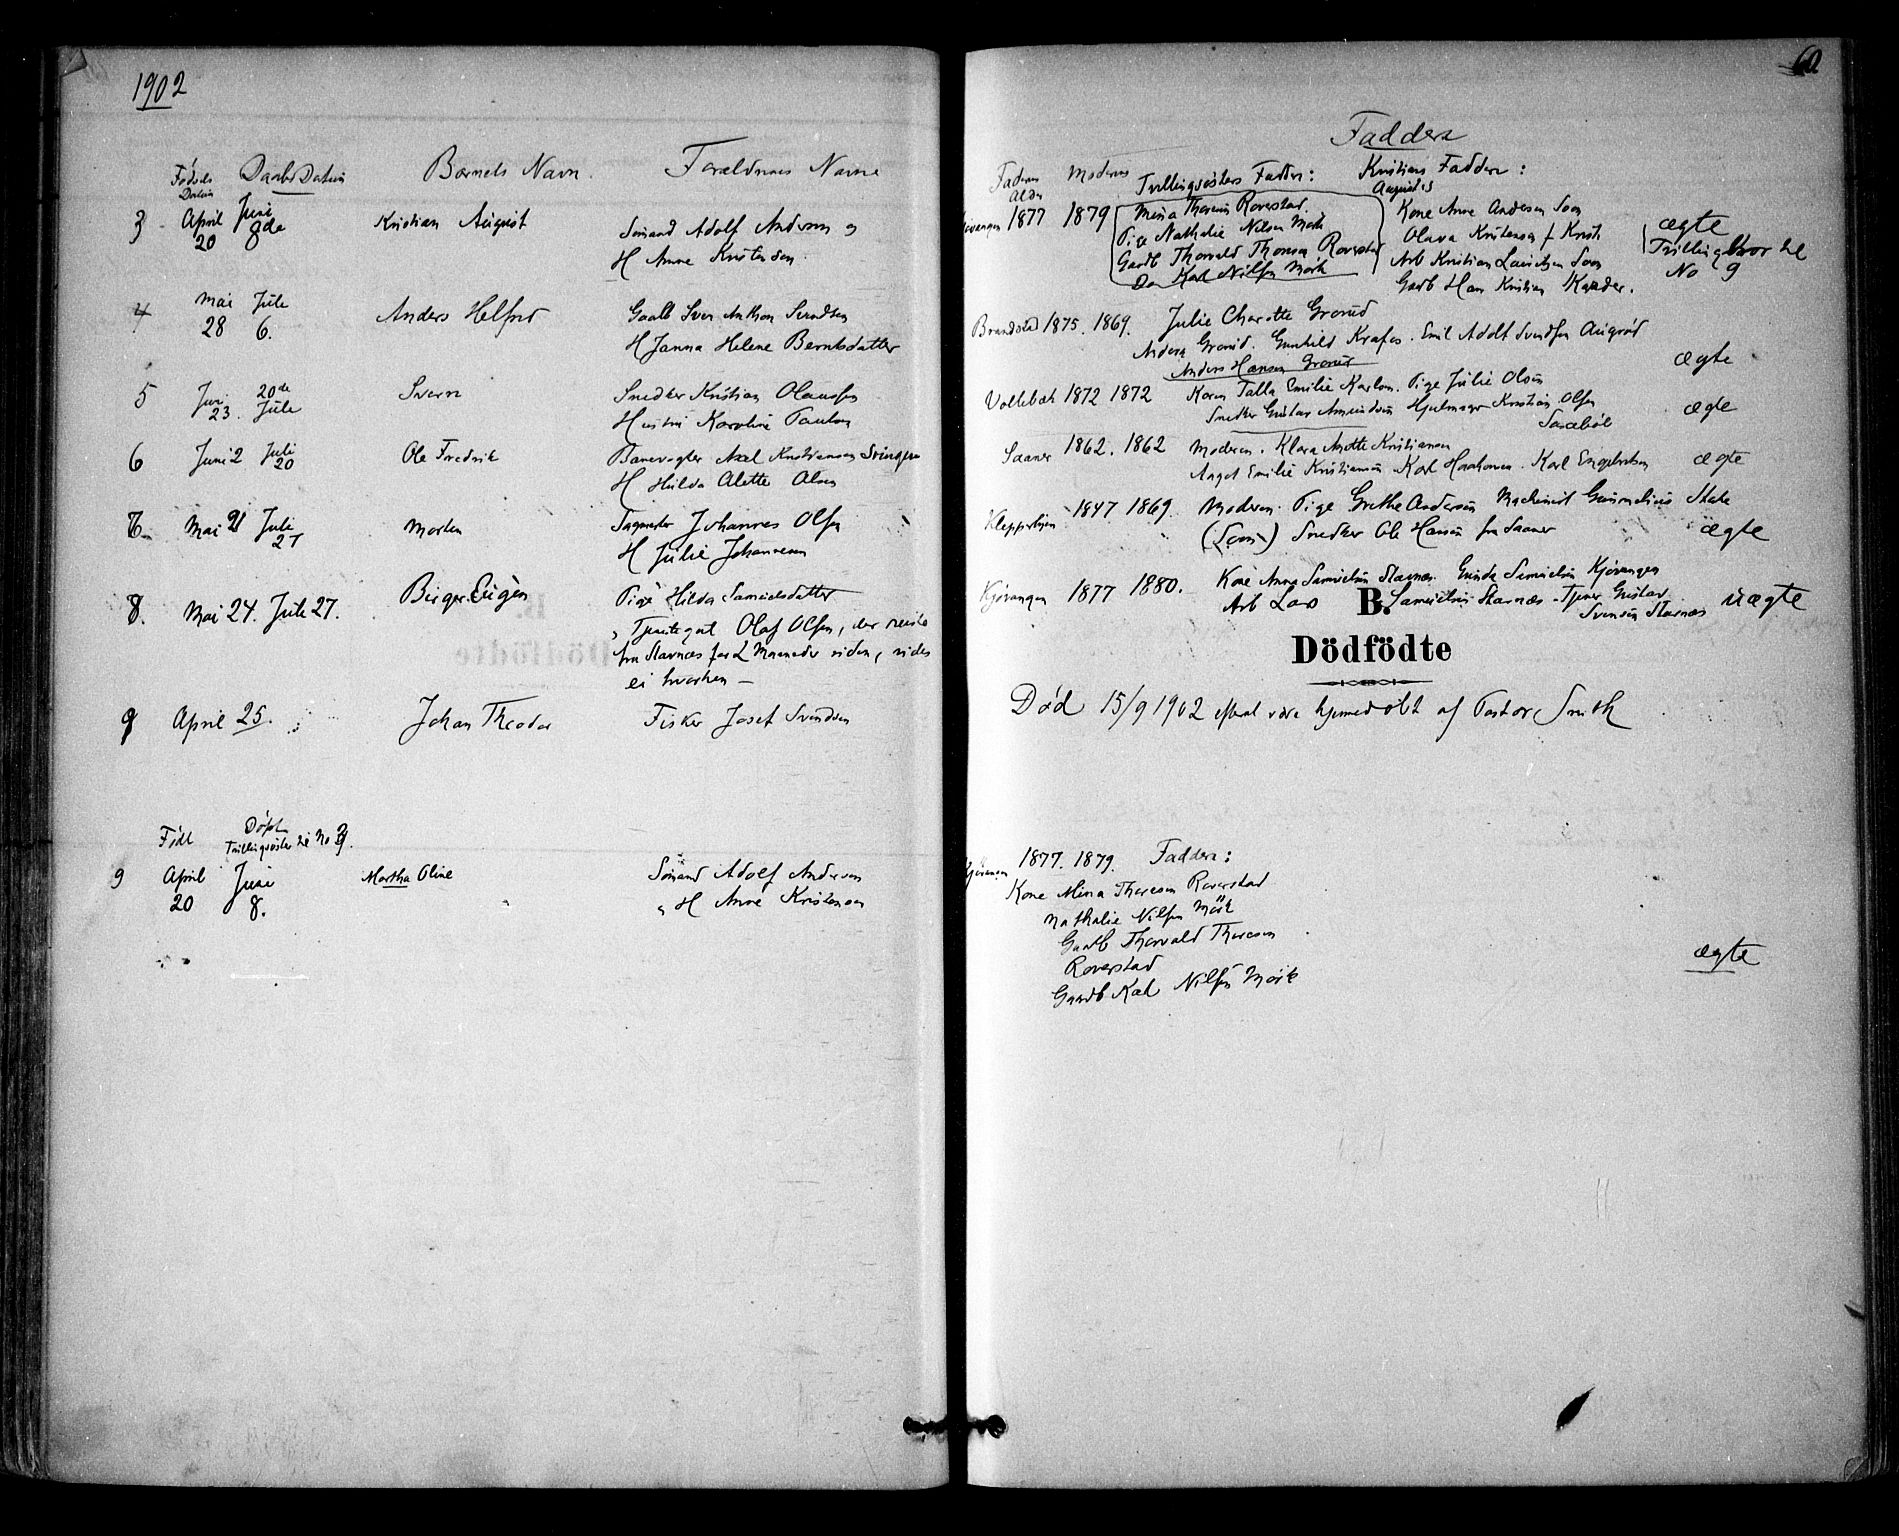 1902
Fødsels Datum
Daabs Datum
Barnets Navn.
Forældrenes Navne
3 April 20 Juni 8de Kristian August Sømand Adolf Andersen og
H Anne Kristensen
4 Mai 28 Jule 6. Anders Helfred Gaalb Sven Anthon Svendsen
H Janna Helene Berntsdatter
5 Juni 23. 20de Jule Svern Snedker Kristian Olaussen
Hustru Karoline Paulsen
6 Juni 2 Juli 20 Ole Fredrik Banevogter Axel Kristiansen Svingen
H Hulda Alette Olsen
7 Mai 21 Juli 27 Morten Johannes Olsen
H Julie Johannesen
8. Mai 24. Jule 27. Birger Eugén Pige Hilda Samuelsdatter
Tjenstegut Olaf Olsen, der reiste
fra Stavnæs for 2 Maaneder siden, vides
ei hvorhen –
9 April 25. Johan Theodor Fisker Josef Svendsen
Født Døpt
Trillingsøster til No 3.
9 April 20 Juni 8. Martha Oline Sømand Adolf Andersen
H Anne Kristensen
60
Faddere
Faderens Alder Moderens Trillingsøsters Faddere: Kristians Faddere:
Augusts
1877 1879 Mina Theresen Roverstad.
Pige Nathalie Nilsen Mørk
Gaardb Thorvald Theresen Roverstad
Do Karl Nilsen Mørk
Kone Anne Andersen Soon
Olava Kristensen
Arb Kristian Lauritzen Soon
Gaardb Hans Kristian
ægte
Trillingbror til
No 9
Brandstad 1875. 1869. Julie Charlotte Grorud
Anders Grorud. Gunhild Krafos. Emil Adolf Svendsen Augrød
Anders Hansen Grorud
ægte
Vollebæk 1872 1872 Karen Talla Emilie Karlsen. Pige Julie Olsen
Snedker Gustav Amundsen Hjalmar Kristian Olsen
ægte
Saaner 1862. 1862 Moderen. Klara Anette Kristiansen
Aagot Emilie Kristiansen Karl Haakonsen. Karl Engebretsen ægte
1847 1869. Moderen. Pige Grethe Andersen Machinist
(Soon) Snedker Ole Hansen fra Saaner ægte
Kjøvangen 1877 1880. Kone Anna Samuelsen Stavnæs. Gunda Samuelsen Kjøvangen
Arb Lars Samuelsen Stavnæs - Tjener Gustav
Svensen Stavnæs uægte
B.
Dödfödte
Død 15/9 1902 efterat være hjemmedøbt af Pastor Smith
Kjøvangen 1877. 1879. Faddere:
Kone Mina Theresen Roverstad
Nathalie Nilsen Mørk
Gaardb Thorvald Theresen
Roverstad
Gaardb Karl Nilsen Mørk
ægte